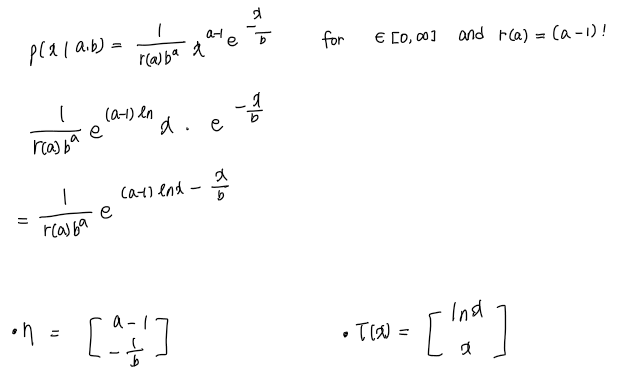 p(x | a.b) = 1/(r(a)b^a) x^(a-1) e^(-x/b) for ∈ [0, ∞] and r(a) = (a-1)!
1/(r(a)b^a) e^((a-1) ln) x . e^(-x/b)
= 1/(r(a)b^a) e^((a-1) lnx - x/b)
• η = [a-1, -1/b] • T(x) = [ln x, x]